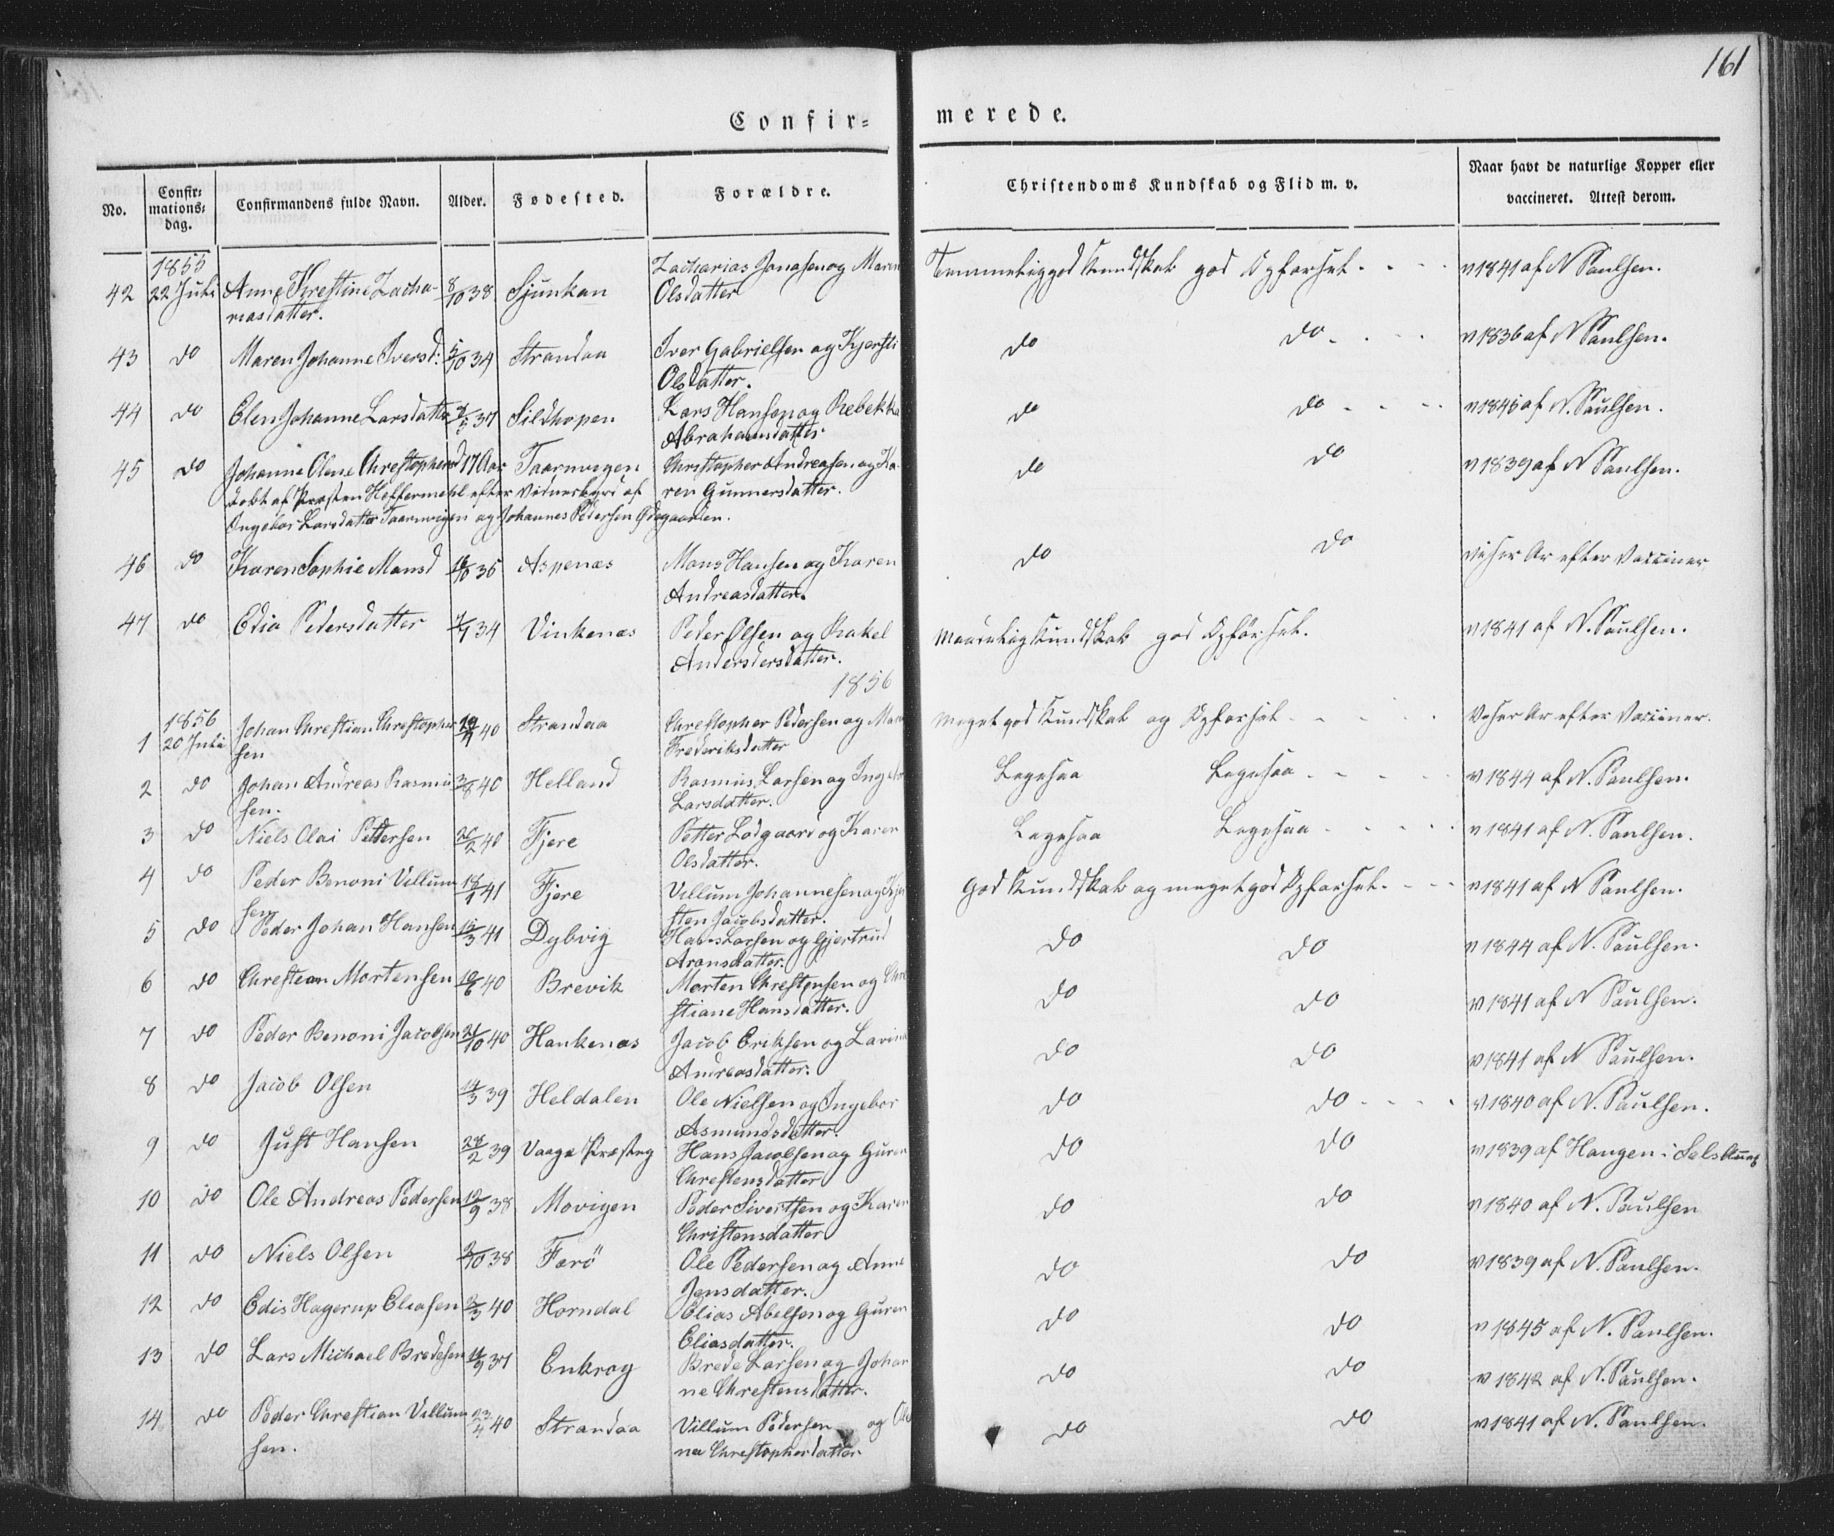 161
Confir= merede.
No. Confir= mations= dag. Confirmandens fulde Navn. Alder. Fødested. Forældre. Christendoms Kundskab og Flid m. v. Naar havt de naturlige Kopper eller vaccineret. Attest derom.
1855
42 22 Juli Anne Kirestine Zacha- 8/10 38 Sjunkan Zacharias Jonasen og Maren Temmelig god Kundskab god Opførsel. v 1841 af N Paulsen.
riasdatter. Olsdatter
43 do Maren Johanne Iversd: 5/10 34 Strandaa Iver Gabrielsen og Kjersti do do v 1836 af N Paulsen.
Olsdatter.
44 do Elen Johanne Larsdatter 37 Sildhopen Lars Hansen og Rebekka do do v 1843 af N. Paulsen.
Abrahamsdatter
45 do Johanne Olene Christophersd 17 Aar Taarnvigen Christopher Andreasen og Ka- do do v 1839 af N Paulsen.
døbt af Præsten Heffermehl efter Vidnesbyrd af ren Gunnersdatter.
Ingebor Larsdatter Taarnvigen og Johannes Pedersen Ødegaarden.
46 do Karen Sophie Monsd 35 Aspenæs Mons Hansen og Karen do do viser Ar efter Vacciner
Andreasdatter.
47 do Edia Pedersdatter 34 Vinkenæs Peder Olsen og Rakel Maadelig Kundskab god Opførsel. v 1841 af N. Paulsen.
Andersdersdatter.
1856
1856
1 20 Juli Johan Christian Christopher 40 Strandaa Christopher Pedersen og Maren Meget god Kundskab og Opførsel Viser Ar efter Vacciner.
sen Frederiksdatter
2 do Johan Andreas Rasmu 3/8 40 Helland Rasmus Larsen og Ingebor Ligesaa Ligesaa v 1844 af N. Paulsen.
sen. Larsdatter.
3 do Niels Olai Pettersen 40 Fjere Petter Lodgaard og Karen Ligesaa Ligesaa v 1841 af N. Paulsen.
Olsdatter.
4 do Peder Benoni Villum 41 Fjere Villum Johannesen og Kjer God Kundskab og meget god Opførsel. v 1841 af N Paulsen.
sen sten Jacobsdatter.
5 do Peder Johan Hansen 41 Dybvig Hans Larsen og Gjertrud do do v 1844 af N. Paulsen.
Aronsdatter.
6 do Christean Mortensen 40 Brevik Morten Christensen og Chri do do v 1841 af N Paulsen.
stiane Hansdatter.
7 do Peder Benoni Jacobsen 21/10 40 Hankenæs Jacob Eriksen og Lavina do do v 1841 af N Paulsen.
Andreasdatter.
8 do Jacob Olsen 39 Heldalen Ole Nielsen og Ingebor do do v 1840 af N. Paulsen.
Asmundsdatter.
9 do Just Hansen 28/2 39 Vaage Præsteg Hans Jacobsen og Guren do do v 1839 af Haugen i
Christensdatter
10 do Ole Andreas Pedersen 19/9 38 Movigen Peder Sivertsen og Karen do do v 1840 af N. Paulsen
Christensdatter
11 do Niels Olsen 38 Farö Ole Pedersen og Anne do do v 1839 af N. Paulsen.
Jensdatter.
12 do Edis Hagerup Eliasen 40 Horndal Elias Abelsen og Guren do do v 1845 af N. Paulsen.
Eliasdatter.
13 do Lars Michael Bredesen 37 Enkrog Brede Larsen og Johan do do v 1842 af N. Paulsen.
ne Christensdatter.
14 do Peder Christian Villum 23/4 40 Strandaa Villum Pedersen og Ole do do v 1841 af N. Paulsen.
sen. na Christophersdatter